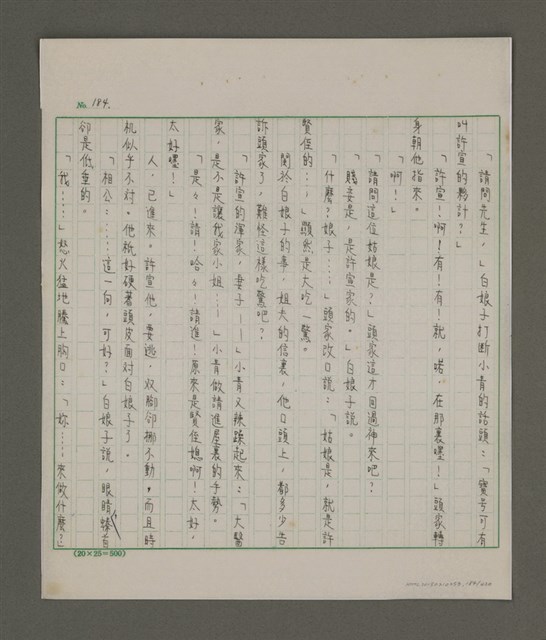 No. 184.
「請問先生,」白娘子打斷小青的話頭:「寶号可有
叫許宣的夥計?」
「許宣!啊!有!有!就,喏,在那裏嘿!」頭家轉
身朝他指來。
「啊!」
「請問這位姑娘是?」頭家這才回過神來吧?
「賤妾是,是許宣家的。」白娘子說。
「什麼?娘子……」頭家改口說:「姑娘是,就是許
賢侄的……」顯然是大吃一驚。
關於白娘子的事,姐夫的信裏,他口頭上,都多少告
訴頭家了,難怪這樣吃驚吧?
「許宣的渾家,妻子——」小青又辣躁起來:「大醫
家,是不是讓我家小姐……」小青做請進屋裏的手勢。
「是々!請!哈々!請進!原來是賢侄媳啊!太好,
太好嘿!」
人,已進來。許宣他,要逃,双腳卻挪不動,而且時
机似乎不对。他祇好硬著頭皮面对白娘子了。
「相公……這一向,可好?」白娘子說,眼睛
卻是低垂的。
「我……」怒火猛地騰上胸口:「妳……來做什麼?」
(20×25=500)